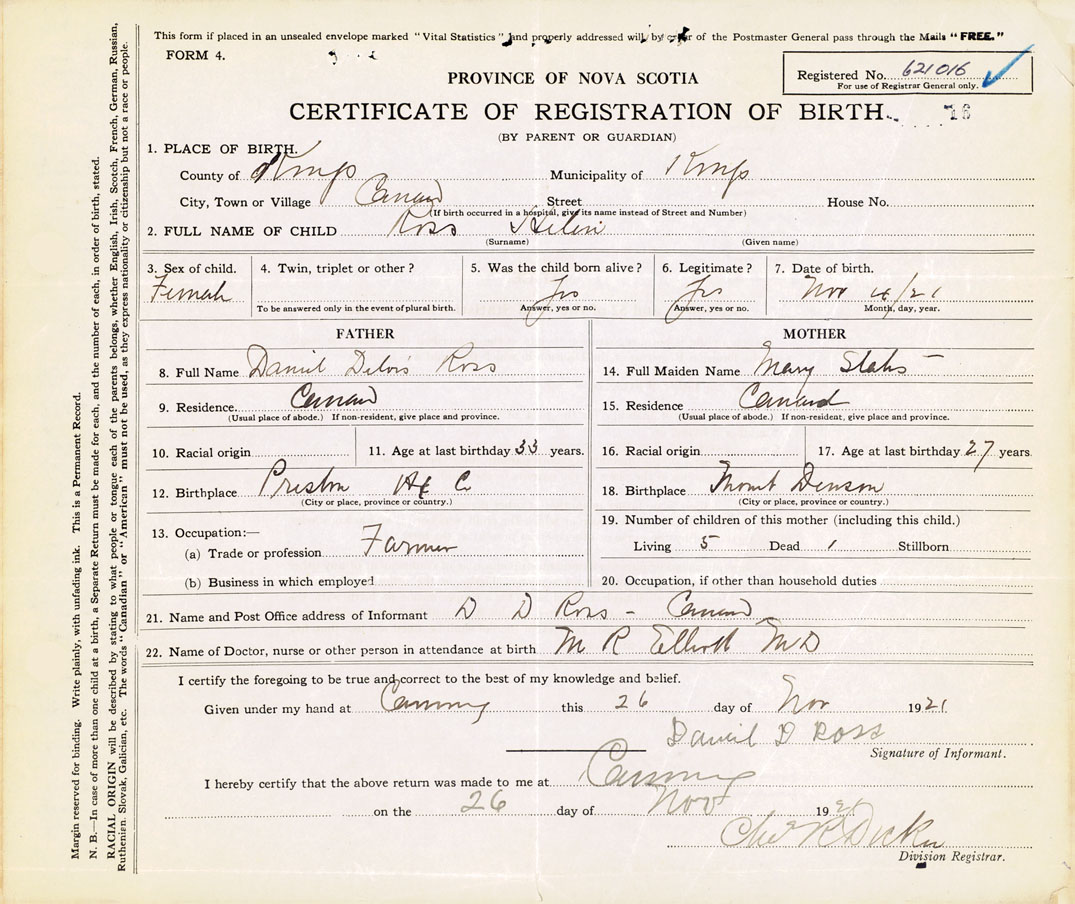 This form if placed in an unsealed envelope marked "Vital Statistics" and properly addressed will, by order of the Postmaster General pass through the Mails "FREE."
FORM 4.
PROVINCE OF NOVA SCOTIA
Registered No. 621016
For use of Registrar General only.
CERTIFICATE OF REGISTRATION OF BIRTH
16
(BY PARENT OR GUARDIAN)
1. PLACE OF BIRTH.
County of Kings Municipality of Kings
City, Town or Village Canard Street House No.
(If birth occurred in a hospital, give its name instead of Street and Number)
2. FULL NAME OF CHILD Ross Helen
(Surname) (Given name)
3. Sex of child. 4. Twin, triplet or other? 5. Was the child born alive? 6. Legitimate? 7. Date of birth.
Female Yes Yes Nov 4/21
To be answered only in the event of plural birth. Answer, yes or no. Answer, yes or no. Month, day, year.
FATHER
8. Full Name Daniel Ross
9. Residence Canard
(Usual place of abode.) If non-resident, give place and province.
10. Racial origin 11. Age at last birthday 33 years.
12. Birthplace Preston Hx C
(City or place, province or country.)
13. Occupation:—
(a) Trade or profession Farmer
(b) Business in which employed
MOTHER
14. Full Maiden Name Mary
15. Residence Canard
(Usual place of abode.) If non-resident, give place and province.
16. Racial origin 17. Age at last birthday 27 years.
18. Birthplace Mount Denson
(City or place, province or country.)
19. Number of children of this mother (including this child.)
Living 5 Dead 1 Stillborn
20. Occupation, if other than household duties
21. Name and Post Office address of Informant D D Ross - Canard
22. Name of Doctor, nurse or other person in attendance at birth M R Elliott MD
I certify the foregoing to be true and correct to the best of my knowledge and belief.
Given under my hand at Canning this 26 day of Nov 1921.
Daniel D Ross
Signature of Informant.
I hereby certify that the above return was made to me at Canning
on the 26 day of Nov 1921
Chas R Dickie
Division Registrar.
Margin reserved for binding. Write plainly, with unfading ink. This is a Permanent Record.
N. B.—In case of more than one child at a birth, a Separate Return must be made for each, and the number of each, in order of birth, stated.
RACIAL ORIGIN will be described by stating to what people or tongue each of the parents belongs, whether English, Irish, Scotch, French, German, Russian,
Ruthenian, Slovak, Galician, etc. The words "Canadian" or "American" must not be used, as they express nationality or citizenship but not a race or people.